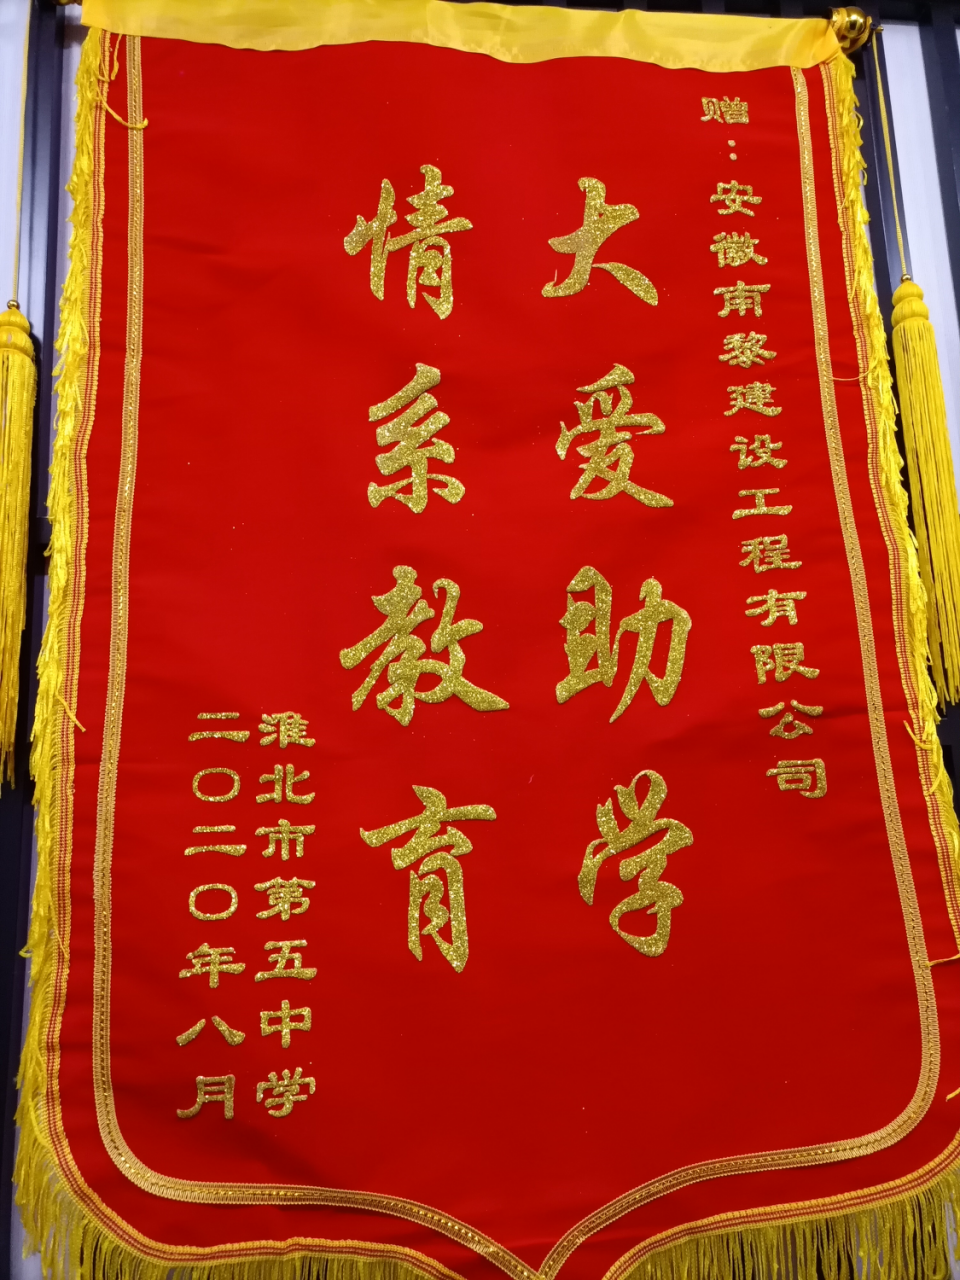 赠：安徽南黎建设工程有限公司
大爱助学
情系教育
淮北市第五中学
二〇二〇年八月